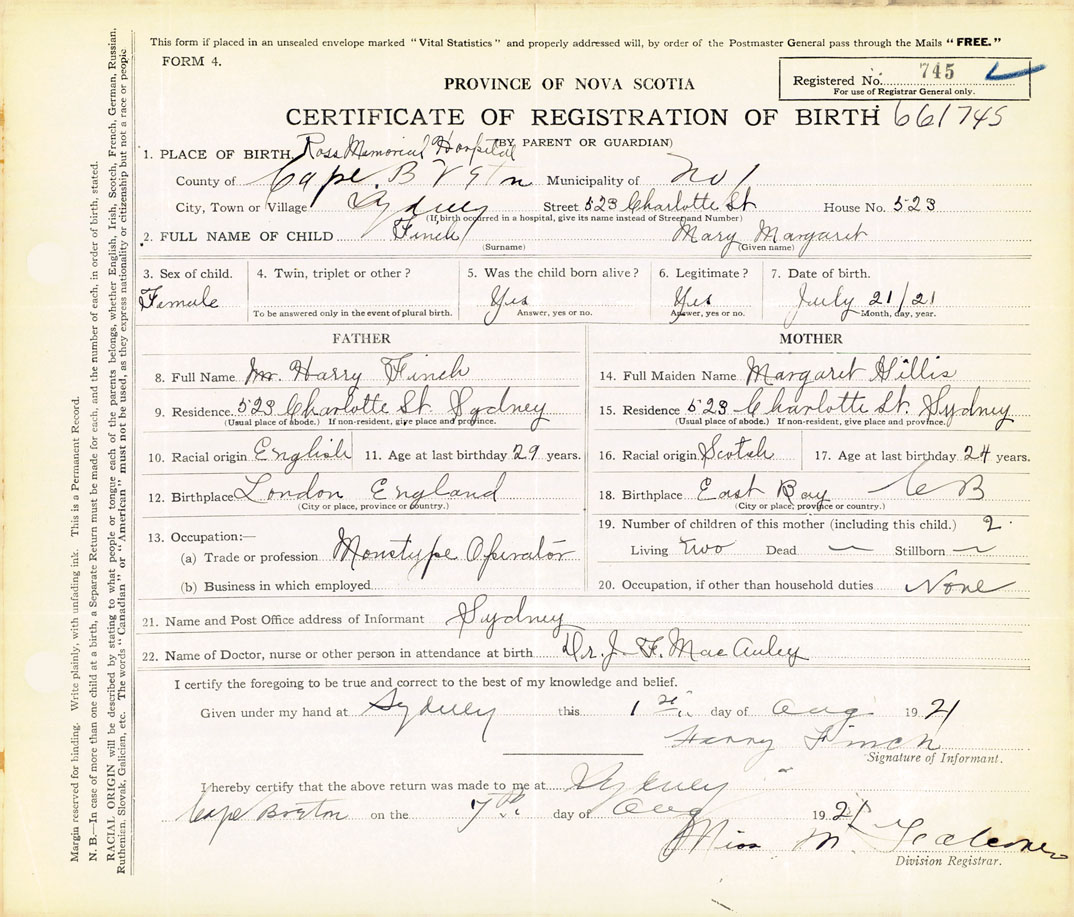 This form if placed in an unsealed envelope marked "Vital Statistics" and properly addressed will, by order of the Postmaster General pass through the Mails "FREE."
FORM 4.
Registered No. 745
For use of Registrar General only.
PROVINCE OF NOVA SCOTIA
CERTIFICATE OF REGISTRATION OF BIRTH 661745
(BY PARENT OR GUARDIAN)
1. PLACE OF BIRTH, Ross Memorial Hospital
County of Cape Municipality of No 1
City, Town or Village Sydney Street 523 Charlotte St House No. 523
(If birth occurred in a hospital, give its name instead of Street and Number)
2. FULL NAME OF CHILD Finch Mary Margaret
(Surname) (Given name)
3. Sex of child. 4. Twin, triplet or other? 5. Was the child born alive? 6. Legitimate? 7. Date of birth.
Female Yes Yes July 21/21
To be answered only in the event of plural birth. Answer, yes or no. Answer, yes or no. Month, day, year.
FATHER MOTHER
8. Full Name Mr. Harry Finch 14. Full Maiden Name Margaret Gillis
9. Residence 523 Charlotte St. Sydney 15. Residence 523 Charlotte St. Sydney
(Usual place of abode.) If non-resident, give place and province. (Usual place of abode.) If non-resident, give place and province.
10. Racial origin English 11. Age at last birthday 29 years. 16. Racial origin Scotch 17. Age at last birthday 24 years.
12. Birthplace London England 18. Birthplace East Bay CB
(City or place, province or country.) (City or place, province or country.)
13. Occupation:— 19. Number of children of this mother (including this child.) 2
(a) Trade or profession Monotype Operator Living Two Dead — Stillborn —
(b) Business in which employed 20. Occupation, if other than household duties None
21. Name and Post Office address of Informant Sydney
22. Name of Doctor, nurse or other person in attendance at birth Dr. J. F. MacAuley
I certify the foregoing to be true and correct to the best of my knowledge and belief.
Given under my hand at Sydney this 1 day of Aug 1921
Harry Finch
Signature of Informant.
I hereby certify that the above return was made to me at Sydney
Cape Breton on the 7th day of Aug 1921
Miss M.
Division Registrar.
Margin reserved for binding. Write plainly, with unfading ink. This is a Permanent Record.
N. B.—In case of more than one child at a birth, a Separate Return must be made for each, and the number of each, in order of birth, stated.
RACIAL ORIGIN will be described by stating to what people or tongue each of the parents belongs, whether English, Irish, Scotch, French, German, Russian,
Ruthenian, Slovak, Galician, etc. The words "Canadian" or "American" must not be used, as they express nationality or citizenship but not a race or people